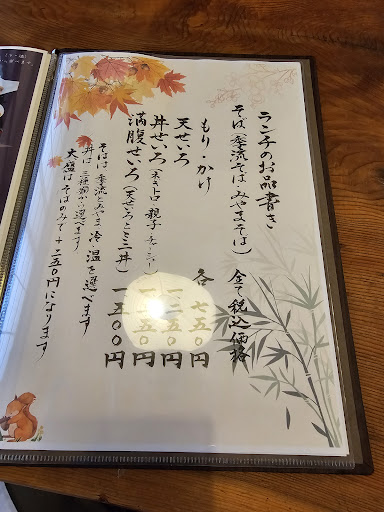 ランチのお品書き
そば(季流そば・みやまそば) 全て税込価格
もり・かけ 各 七五〇円
天せいろ 一二五〇円
丼せいろ(ネギトロ 親子
満腹せいろ(天せいろとミニ丼) 一五〇〇円
そばは 季流とみやま 冷 温を選べます
丼は 三種類から選べます
大盛はそばのみで+二五〇円になります